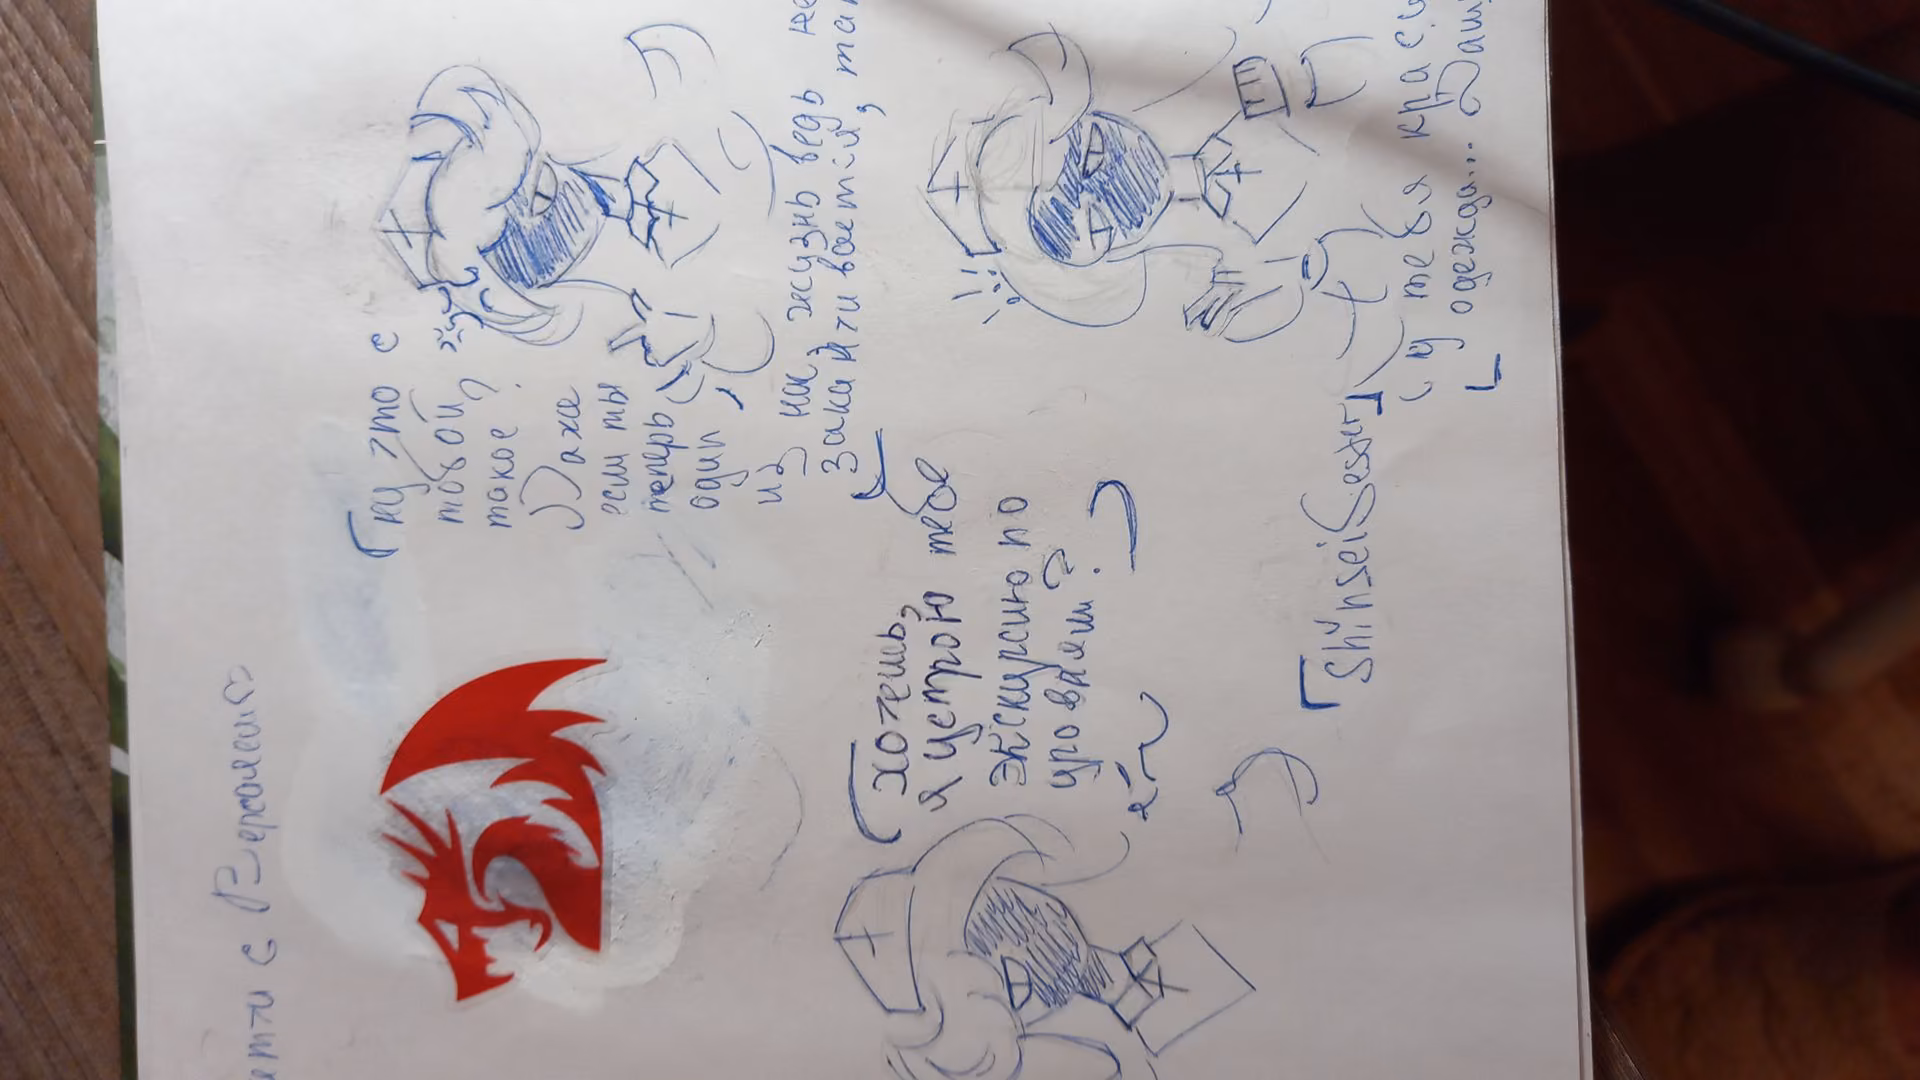 с
ну это с
тобой
такое?
Даже
если ты
теперь
один,
из нас жизнь ведь не
заканчивается,
Хочешь,
я устрою тебе
экскурсию по
уровням?
ShinseiSester
у тебя кра
одежда...